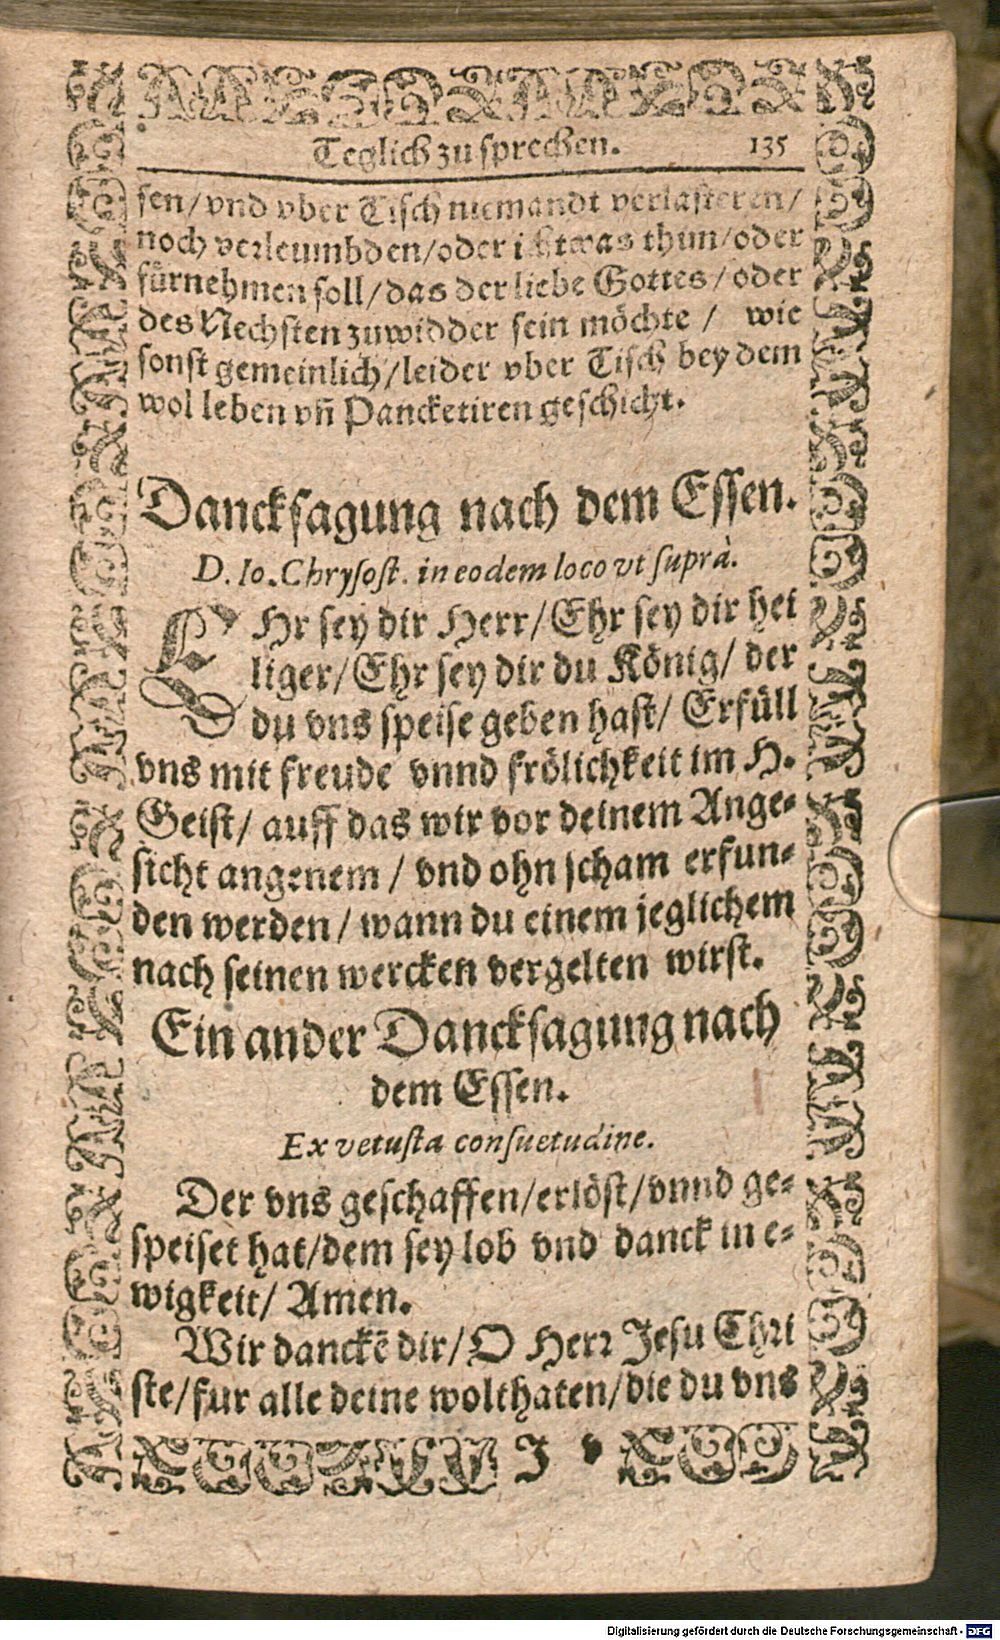 Teglich zu sprechen. 135
sen/vnd vber Tisch niemandt verlasteren/
noch verleumbden/oder ichtwas thun/oder
fürnehmen soll/das der liebe Gottes/oder
des Nechsten zuwidder sein möchte / wie
sonst gemeinlich/leider vber Tisch bey dem
wol leben vñ Pancketiren geschicht.
Dancksagung nach dem Essen.
D. Io. Chrysost. in eodem loco vt suprà.
EHr sey dir Herr/Ehr sey dir hei
liger/Ehr sey dir du König/ der
du vns speise geben hast/ Erfüll
vns mit freude vnnd frölichkeit im H.
Geist/ auff das wir vor deinem Ange-
sicht angenem / vnd ohn scham erfun-
den werden / wann du einem jeglichem
nach seinen wercken vergelten wirst.
Ein ander Dancksagung nach
dem Essen.
Ex vetusta consuetudine.
Der vns geschaffen/erlöst/vnnd ge-
speiset hat/dem sey lob vnd danck in e-
wigkeit/ Amen.
Wir danckē dir/O Herr Jesu Chri
ste/fur alle deine wolthaten/die du vns
J
Digitalisierung gefördert durch die Deutsche Forschungsgemeinschaft - DFG